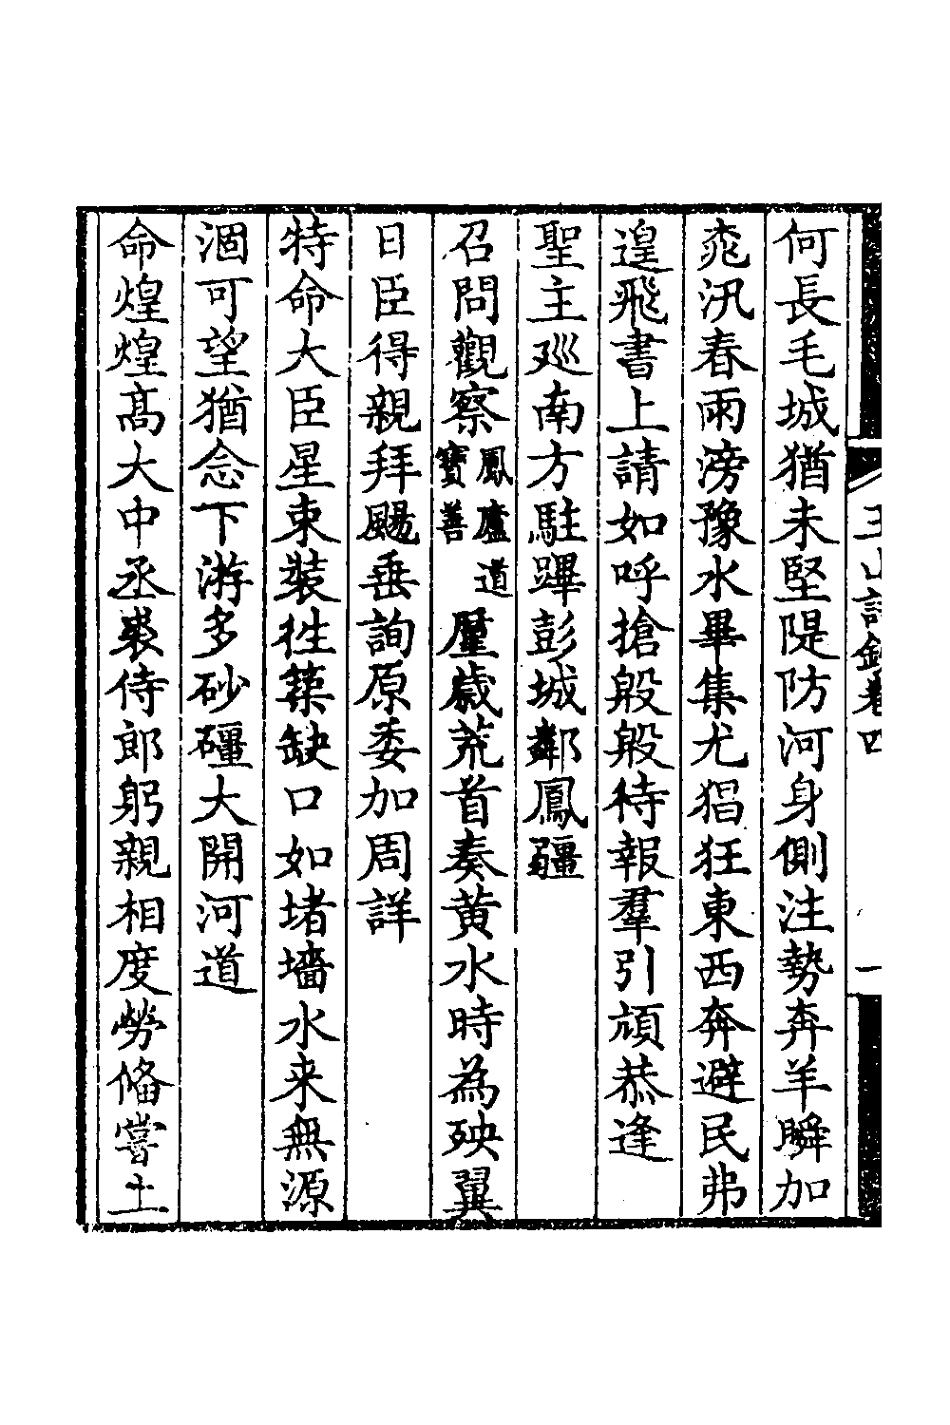 何長毛城猶未堅隄防河身側注勢奔羊瞬加
桃汛春雨滂豫水畢集尤猖狂東西奔避民弗
遑飛書上請如呼搶般般待報羣引頏恭逢
聖主巡南方駐蹕彭城鄰鳳疆
召問觀察鳳廬道寶善廑歲荒首奏黄水時為殃翼
日臣得親拜颺垂詢原委加周詳
特命大臣星束裝徃築缺口如堵墻水来無源
涸可望猶念下游多砂礓大開河道
命煌煌高大中丞裘侍郎躬親相度勞俻嘗土
玉山詩鈔卷四
一